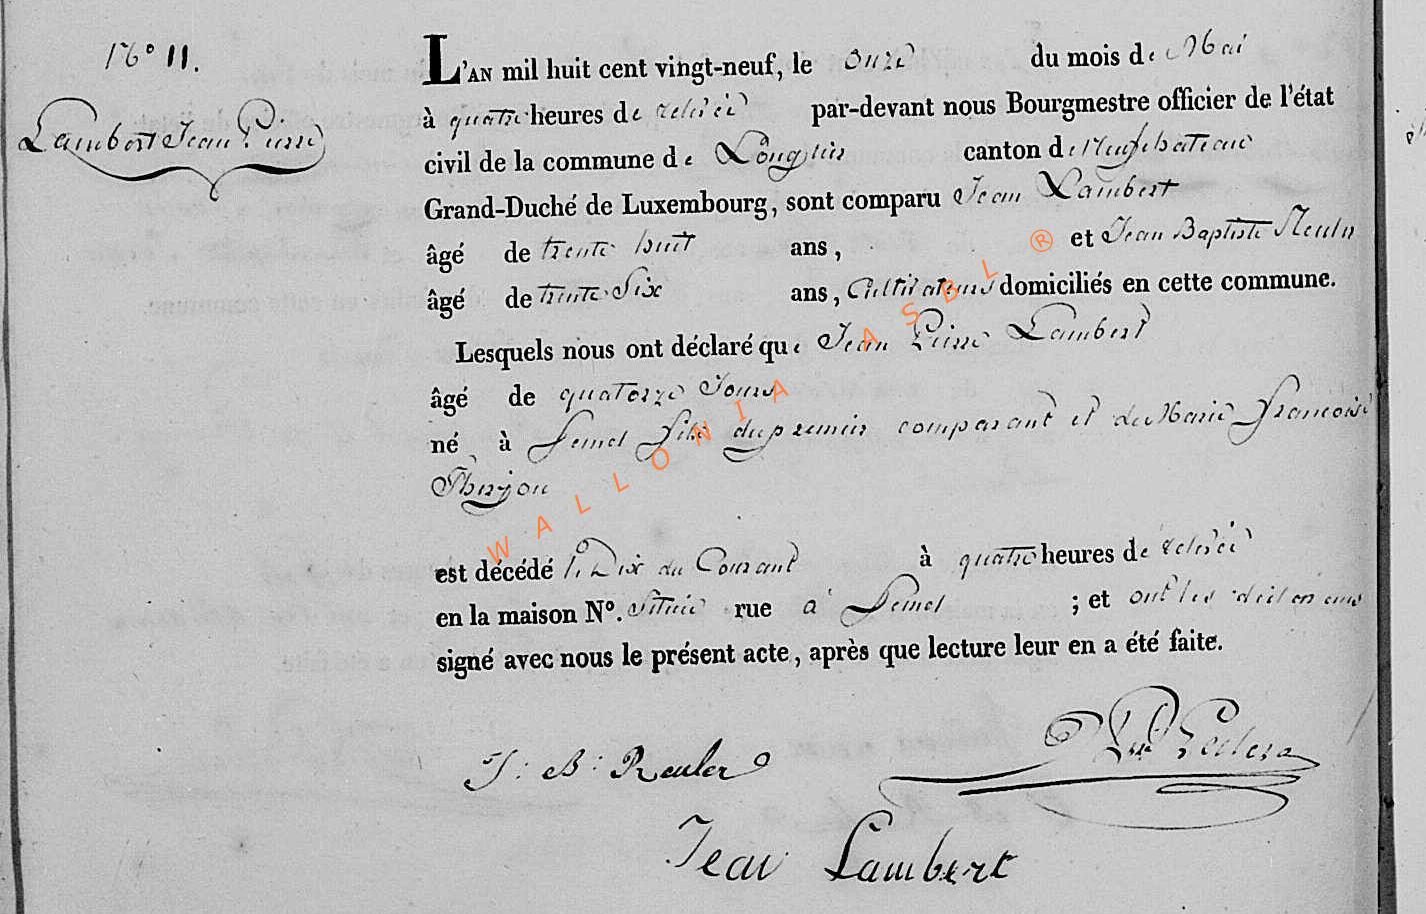 N° 11.
Lambert Jean Pierre
L'AN mil huit cent vingt-neuf, le onze du mois de Mai
à quatre heures de relevée par-devant nous Bourgmestre officier de l'état
civil de la commune de Longlier canton de Neufchateau
Grand-Duché de Luxembourg, sont comparu Jean Lambert
âgé de trente huit ans, et Jean Baptiste Reuler
âgé de trente Six ans, Cultivateurs domiciliés en cette commune.
Lesquels nous ont déclaré que Jean Pierre Lambert
âgé de quatorze Jours
né à Semel fils du premier comparant et de Marie francoise
est décédé le Dix du Courant à quatre heures de relevée
en la maison N°. Située rue à Semel ; et ont les
signé avec nous le présent acte, après que lecture leur en a été faite.
J: B: Reuler
Jean Lambert
WALLONIA ASBL ®